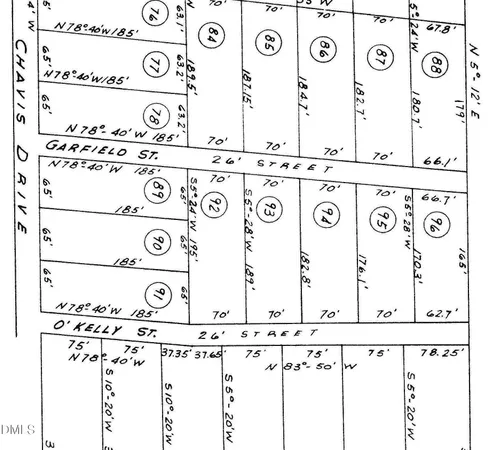 5'
4' W
76
63.1'
N 78°-40'W 185'
65'
77
63.2'
N 78°-40'W 185'
65'
78
63.2'
N 78°-40'W 185'
CHAVIS DRIVE
N
70'
84
189.5'
70'
70'
85
187.15'
70'
W
70'
86
184.7'
70'
70'
87
182.7'
70'
5°-24'W
67.8'
88
180.7'
66.1'
179'
N 5°-12' E
GARFIELD ST.
26' STREET
N 78°-40'W 185'
65'
89
65'
185'
65'
90
65'
185'
65'
91
65'
N 78°-40'W 185'
70'
92
S 5°-24'W 195'
70'
70'
93
S 5°-28'W 189'
70'
70'
94
182.8'
70'
70'
95
176.1'
70'
S 5°-28'W
66.7'
96
170.3'
62.7'
165'
O'KELLY ST.
26' STREET
75'
75'
37.35'
37.65'
75'
75'
75'
78.25'
N 78°-40'W
N 83°-50' W
S 10°-20'W
S 10°-20'W
S 5°-20'W
S 5°-20'W
3
DMLS